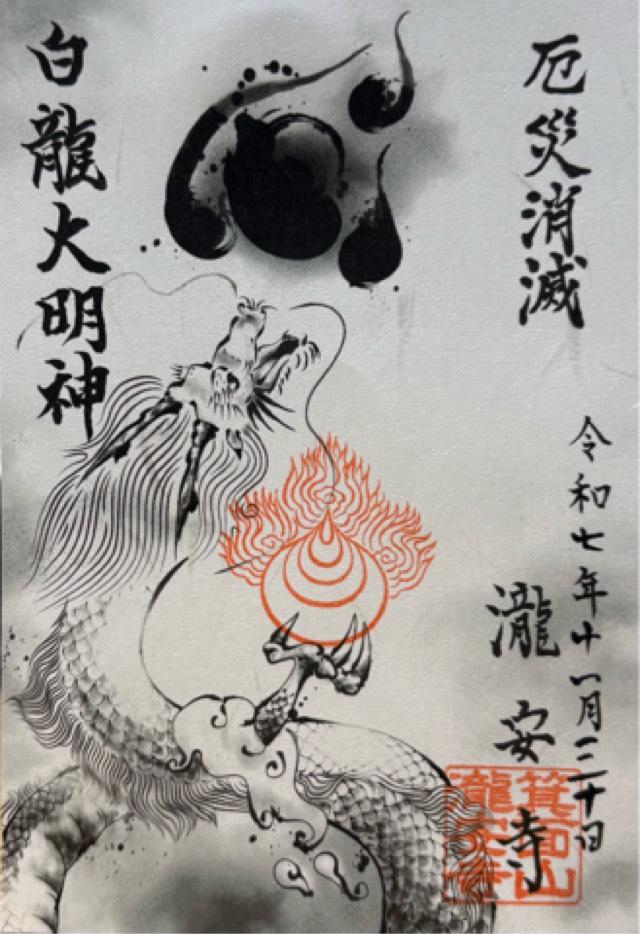 厄災消滅
令和七年十一月三十日
瀧安寺
箕面山
瀧安寺
白龍大明神